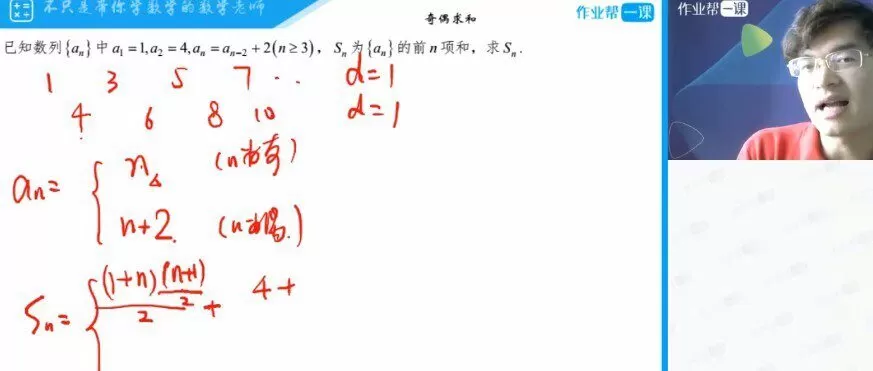 不只是带你学数学的数学老师
奇偶求和
作业帮 一课
作业帮 一课
已知数列{aₙ}中 a₁=1,a₂=4,aₙ=aₙ₋₂+2(n≥3),Sₙ为{aₙ}的前n项和,求Sₙ.
1 3 5 7 ·· d=1
4 6 8 10 d=1
aₙ= { n (n为奇)
n+2 (n为偶)
Sₙ= { (1+n)(n+1)/2 / 2 + 4+